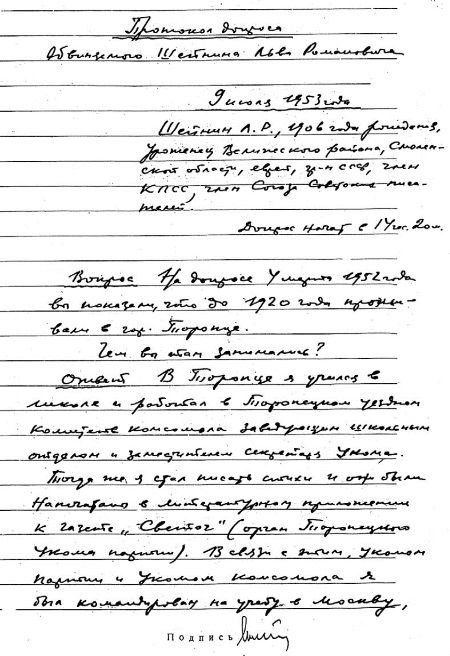 Протокол допроса
Обвиняемого Шейнина Льва Романовича
9 июля 1953 года
Шейнин Л.Р., 1906 года рождения,
уроженец Велижского района, Смолен-
ской области, еврей, гр-н СССР, член
КПСС, член Союза Советских писа-
телей.
Допрос начат в 14 час. 20 м.
Вопрос На допросе 4 марта 1952 года
вы показали, что до 1920 года прожи-
вали в гор. Торопце.
Чем вы там занимались?
Ответ В Торопце я учился в
школе и работал в Торопецком уездном
комитете комсомола заведующим школьным
отделом и заместителем секретаря Укома.
Тогда же я стал писать стихи и они были
напечатаны в литературном приложении
к газете „Светоч" (орган Торопецкого
Укома партии). В связи с этим, Укомом
партии и Укомом комсомола я
был командирован на учебу в Москву,
Подпись